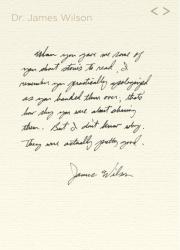 Dr. James Wilson
< >
When you gave me some of
you short stories to read, I
remember you practically apologized
as you handed them over, thats
how shy you were about sharing
them. But I don't know why.
They were actually pretty good.
James Wilson